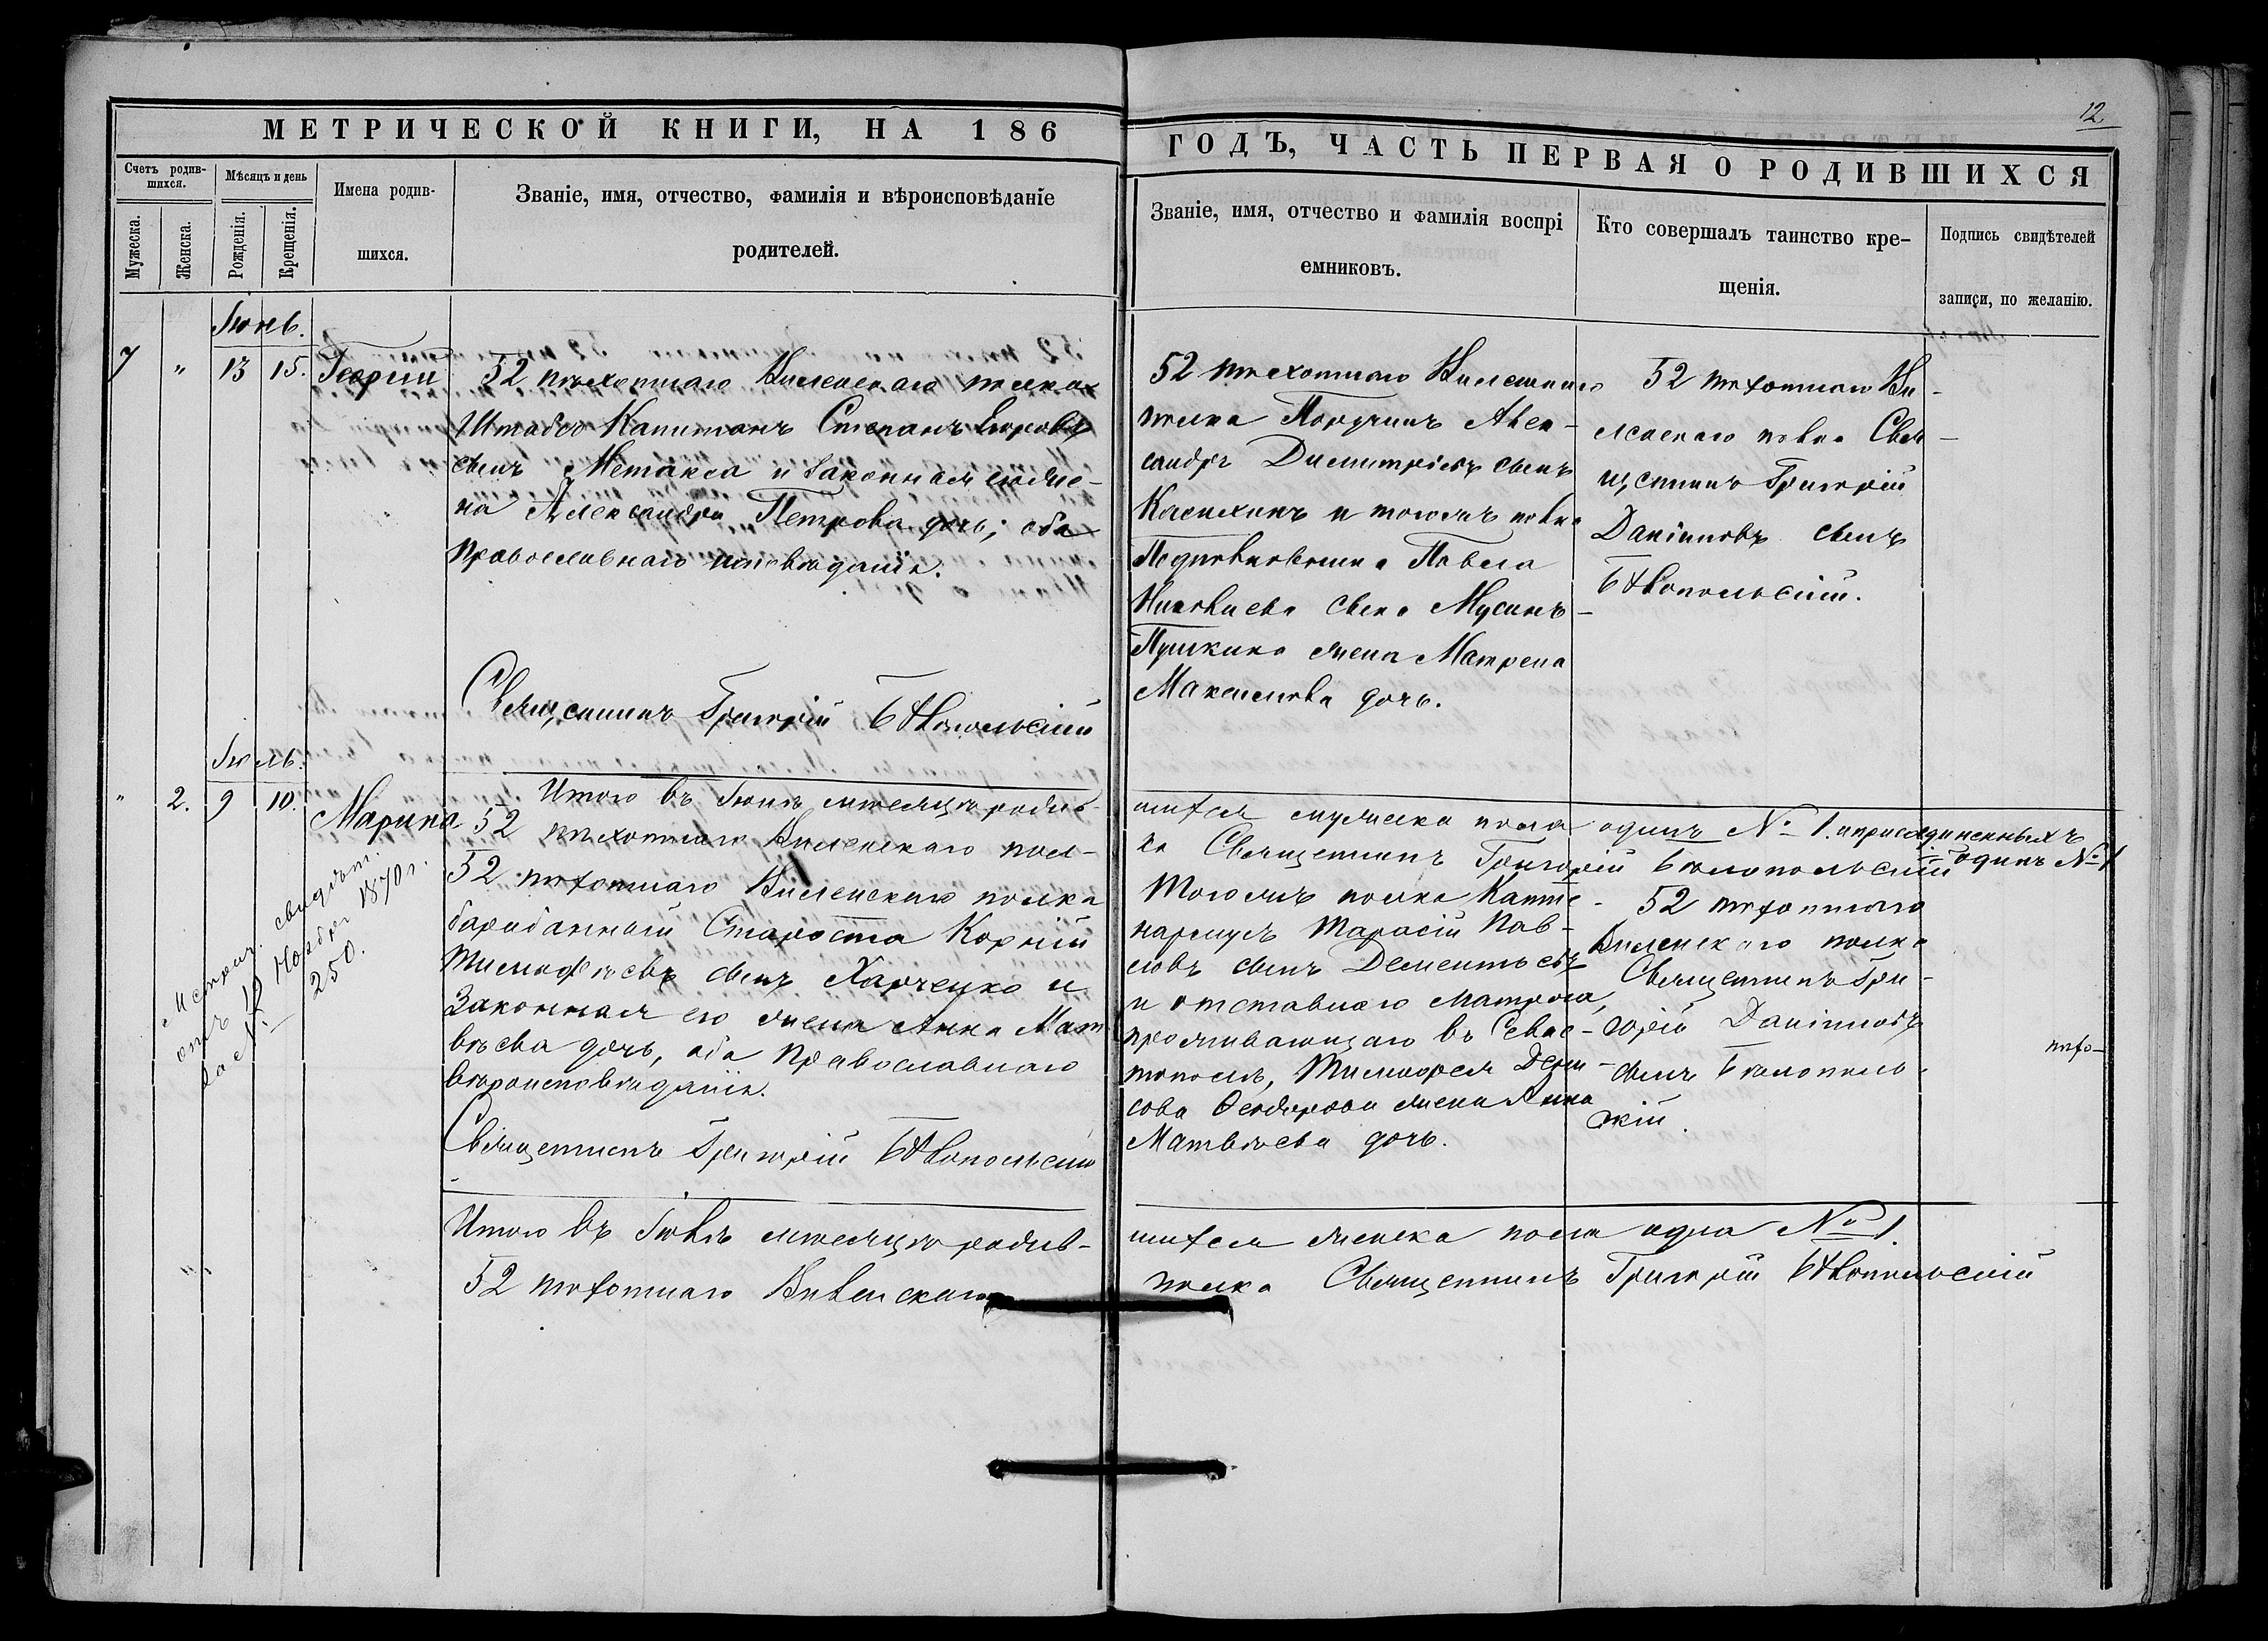 12.
МЕТРИЧЕСКОЙ КНИГИ, НА 186
ГОДЪ, ЧАСТЬ ПЕРВАЯ О РОДИВШИХСЯ
Счетъ родив-
шихся.
Мужеска.
Женска.
Мѣсяцъ и день
Рожденія.
Крещенія.
Имена родив-
шихся.
Званіе, имя, отчество, фамилія и вѣроисповѣданіе
родителей.
Званіе, имя, отчество и фамилія воспрі
емниковъ.
Кто совершалъ таинство кре-
щенія.
Подпись свидѣтелей
записи, по желанію.
Іюнь.
7 " 13 15. Георгій
52 пѣхотнаго Виленскаго полка
Штабсъ Капитанъ Степанъ Егоровъ
сынъ Метакса и законная его же-
на Александра Петрова дочь; оба
православнаго исповѣданія.
Священникъ Григорій Бѣлопольскій
52 пѣхотнаго Виленскаго
полка Поручикъ Алек-
сандръ Димитріевъ сынъ
и тогожъ полка
Подполковника Павла
Николаева сына Мусинъ-
Пушкина жена Матрена
Максимова дочь.
52 пѣхотнаго Ви-
ленскаго полка Свя-
щенникъ Григорій
Даніиловъ сынъ
Бѣлопольскій.
Итого въ Іюнѣ мѣсяцѣ родив-
шихся мужеска пола одинъ № 1. и присоединенныхъ
одинъ № 1
52 пѣхотнаго Виленскаго пол-
ка Священникъ Григорій Бѣлопольскій
Іюль.
" 2. 9 10. Марина
Метрич. свидѣт.
отъ 12 Ноября 1870 г.
за № 250.
52 пѣхотнаго Виленскаго полка
барабанный Староста Корній
Тимофѣевъ сынъ Харченко и
Законная его жена Анна Мат
вѣева дочь, оба Православнаго
вѣроисповѣданія.
Священникъ Григорій Бѣлопольскій
Тогожъ полка Капте-
нармусъ Тарасій Пав-
ловъ сынъ Дементьевъ
и отставнаго матроса,
проживающаго въ Севас-
тополѣ, Тимофея Дени-
сова Феодорова жена Анна
Матвѣева дочь.
52 пѣхотнаго
Виленскаго полка
Священникъ Гри-
горій Даніиловъ
сынъ Бѣлополь-
скій.
пѣхо-
Итого въ Іюлѣ мѣсяцѣ родив-
шихся женска пола одна № 1.
52 пѣхотнаго Виленскаго
полка Священникъ Григорій Бѣлопольскій